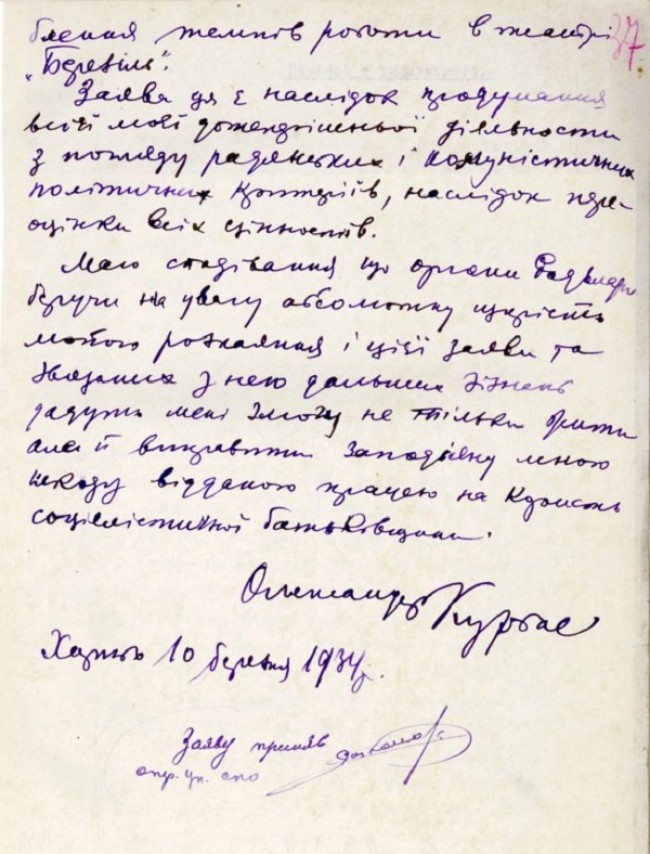 блення темпів роботи в театрі
37
„Березіль".
Заява ця є наслідок продумання
всієї моєї дотеперішньої діяльности
з погляду радянських і комуністичних
політичних критеріїв, наслідок пере-
оцінки всіх цінностів.
Маю сподівання що органи Радвлади
беручи на увагу абсолютну щирість
мойого розкаяння і цієї заяви та
звязаних з нею дальших зізнань
дадуть мені змогу не тільки
але й виправити заподіяну мною
шкоду відданою працею на користь
соціялістичної батьківщини.
Олександр Курбас
Харків 10 березня 1934 р.
Заяву приняв
опер. уп. спо